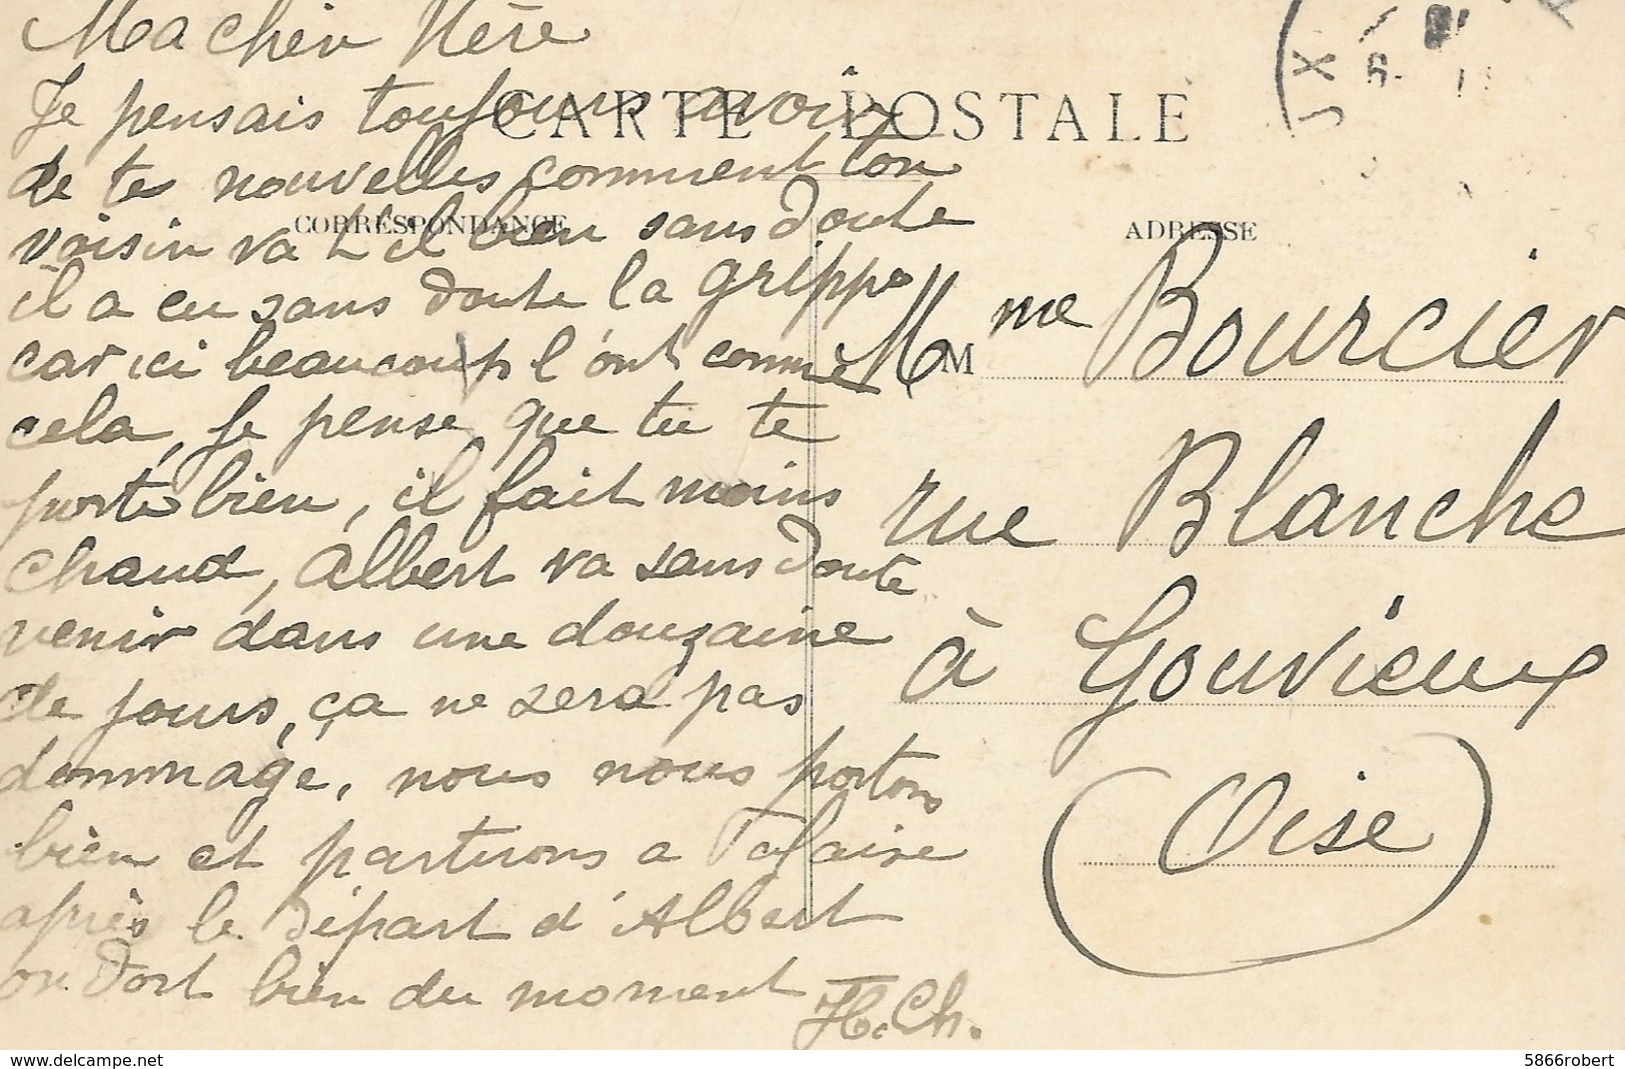 Ma chère Mère
Je pensais toujours avoir
CARTE POSTALE
de tes nouvelles comment ton
CORRESPONDANCE
voisin va t'il bien sans doute
il a eu sans doute la grippe
car ici beaucoup l'ont comme
cela, Je pense que tu te
porte bien, il fait moins
chaud, Albert va sans doute
venir dans une douzaine
de jours, ça ne sera pas
dommage, nous nous portons
bien et partirons a
après le départ d'Albert
on dort bien du moment
H. Ch.
ADRESSE
M
Mme Bourcier
rue Blanche
à Gouvieux
(Oise)
www.delcampe.net
5866robert